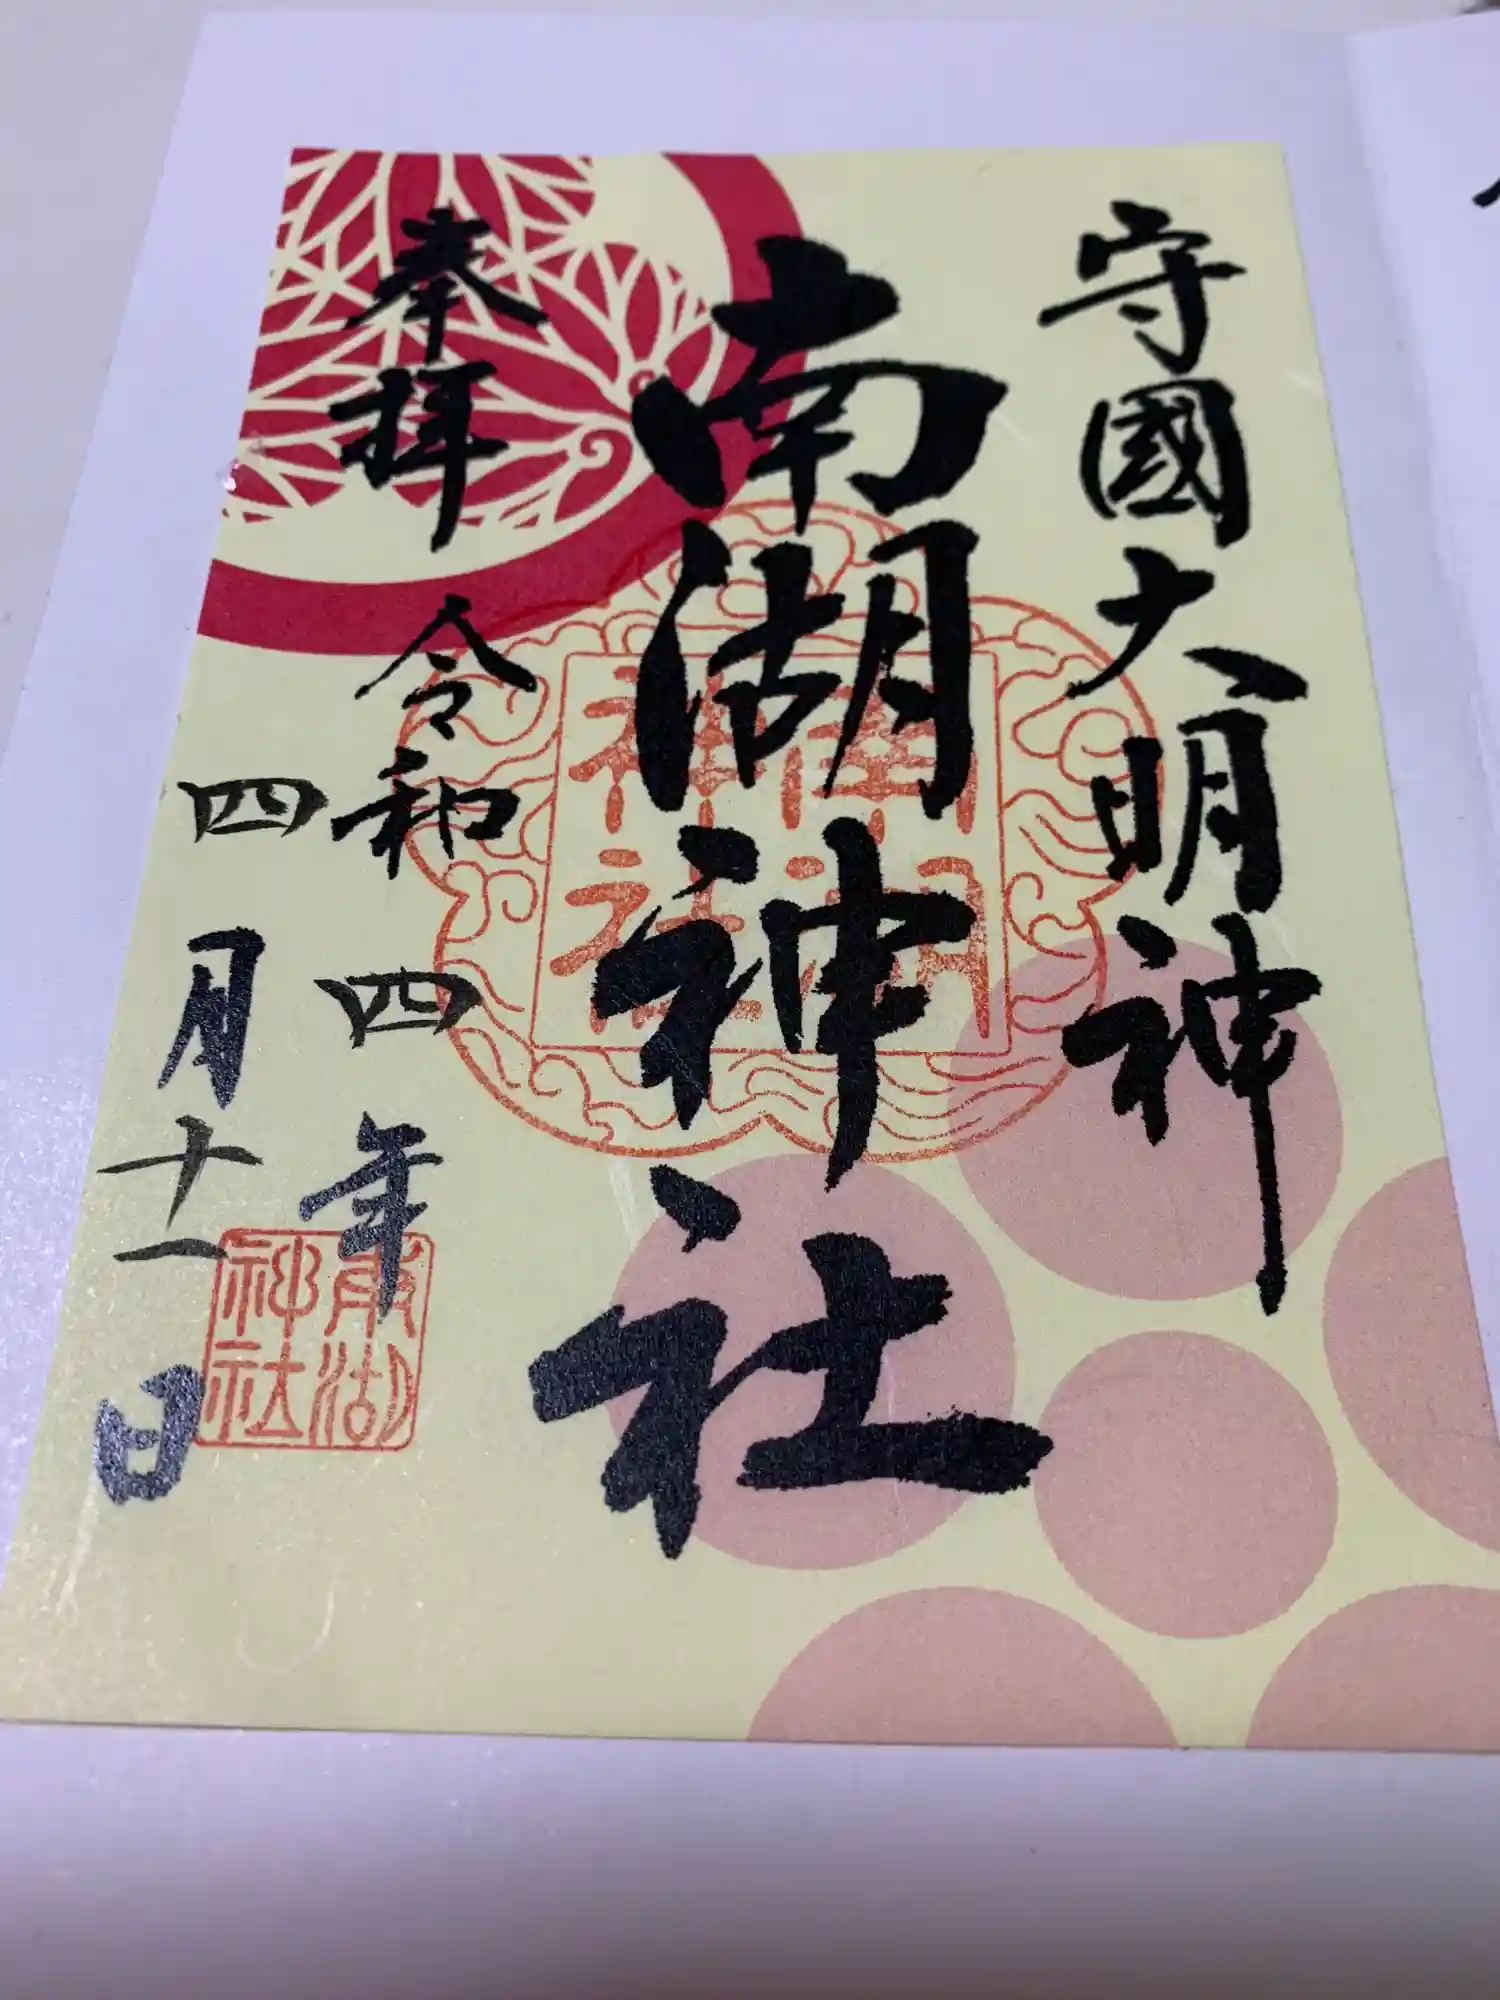 守國大明神
南湖神社
奉拝 令和四年
四月十一日
南湖神社
南湖神社